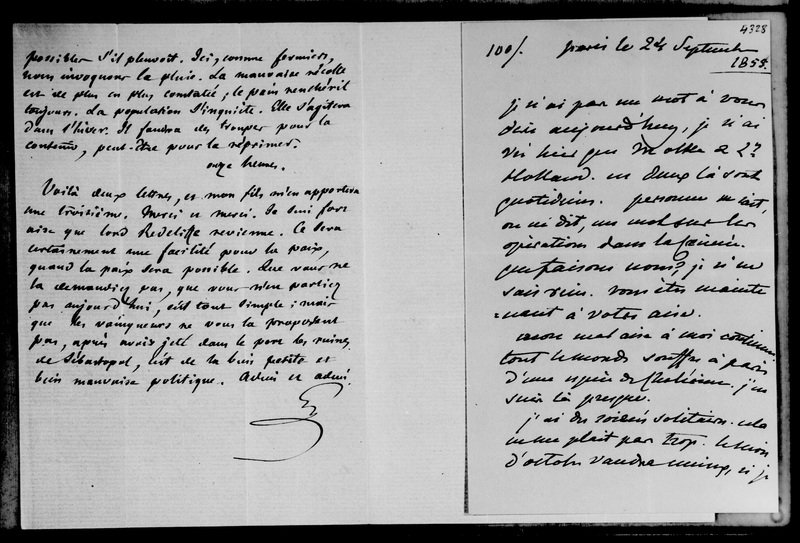 possibles s'il pleuvoit. Ici, comme fermiers,
nous invoquons la pluie. La mauvaise récolte
est de plus en plus constatée ; le pain renchérit
toujours. La population s'inquiète. Elle s'agitera
dans l'hiver. Il faudra des troupes pour la
contenir, peut-être pour la réprimer.
onze heures.
Voilà deux lettres, et mon fils m'en apportera
une troisième. Merci et merci. Je suis fort
aise que lord Redcliffe revienne. Ce sera
certainement une facilité pour la paix,
quand la paix sera possible. Que vous ne
la demandiez pas, que vous n'en parliez
pas aujourd'hui, c'est tout simple ; mais
que les vainqueurs ne vous la proposent
pas, après avoir jeté dans le port les ruines
de Sébastopol, c'est de la bien petite et
bien mauvaise politique. Adieu et adieu.
G
4328
100/. Paris le 24 Septembre
1855.
je n'ai pas un mot à vous
dire aujourd'huy, je n'ai
vu hier que Molke et Ly
Holland. ces deux là sont
quotidiens. personne ne sait,
on ne dit, un mot sur les
opérations dans la Crimée.
que faisons nous? je n'en
sais rien. vous êtes mainte
=nant à votre aise.
mon mal aise à moi continue.
tout le monde souffre à paris
d'une espèce de Cholérine. j'en
suis là presque.
j'ai des soirées solitaires. cela
ne me plait pas trop. le mois
d'octobre vaudra mieux, si je